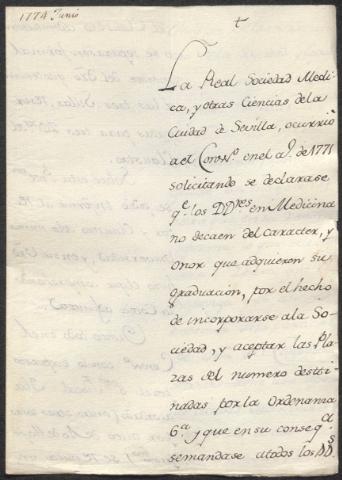 1774 Junio
+
La Real Sociedad Medi
ca, y otras Ciencias de la
Ciudad de Sevilla, ocurrió
a el Cons.º en el a.º de 1771
solicitando se declarase
q.e los DD.res en Medicina
no decaen del caracter, y
onor que adquieron su
graduación, por el hecho
de incorporarse ala So
ciedad, y aceptar las Pla
zas del numero desti
nadas por la Ordenanza
6.a y que en su conseq.a
semandase atodos los DD.s